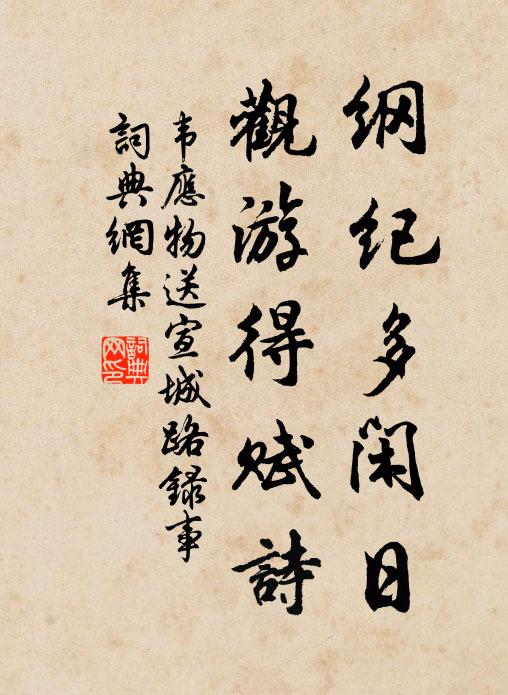 纲纪多闲日
觀游得赋詩
韦應物送宣城路録事
詞典網集
詞典网印